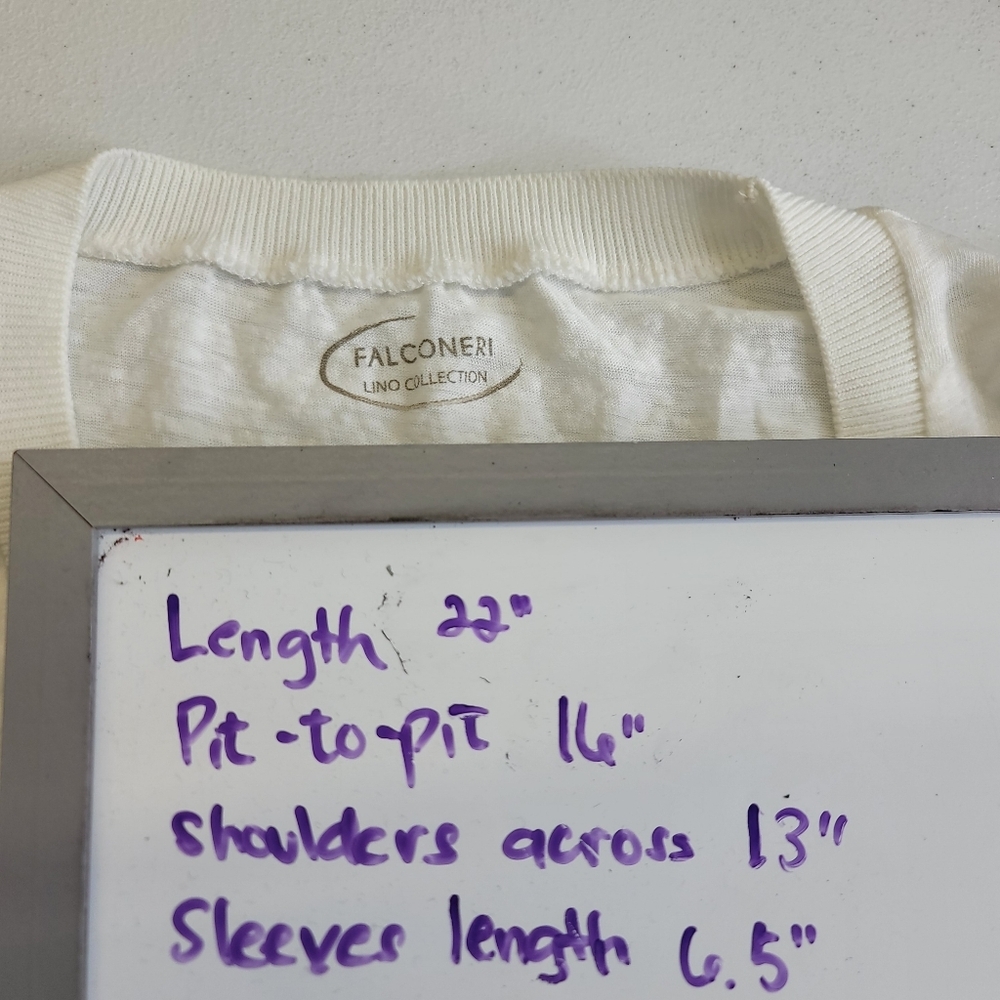 FALCONERI
LINO COLLECTION
Length 22"
Pit-to-pit 16"
shoulders across 13"
Sleeves length 6.5"